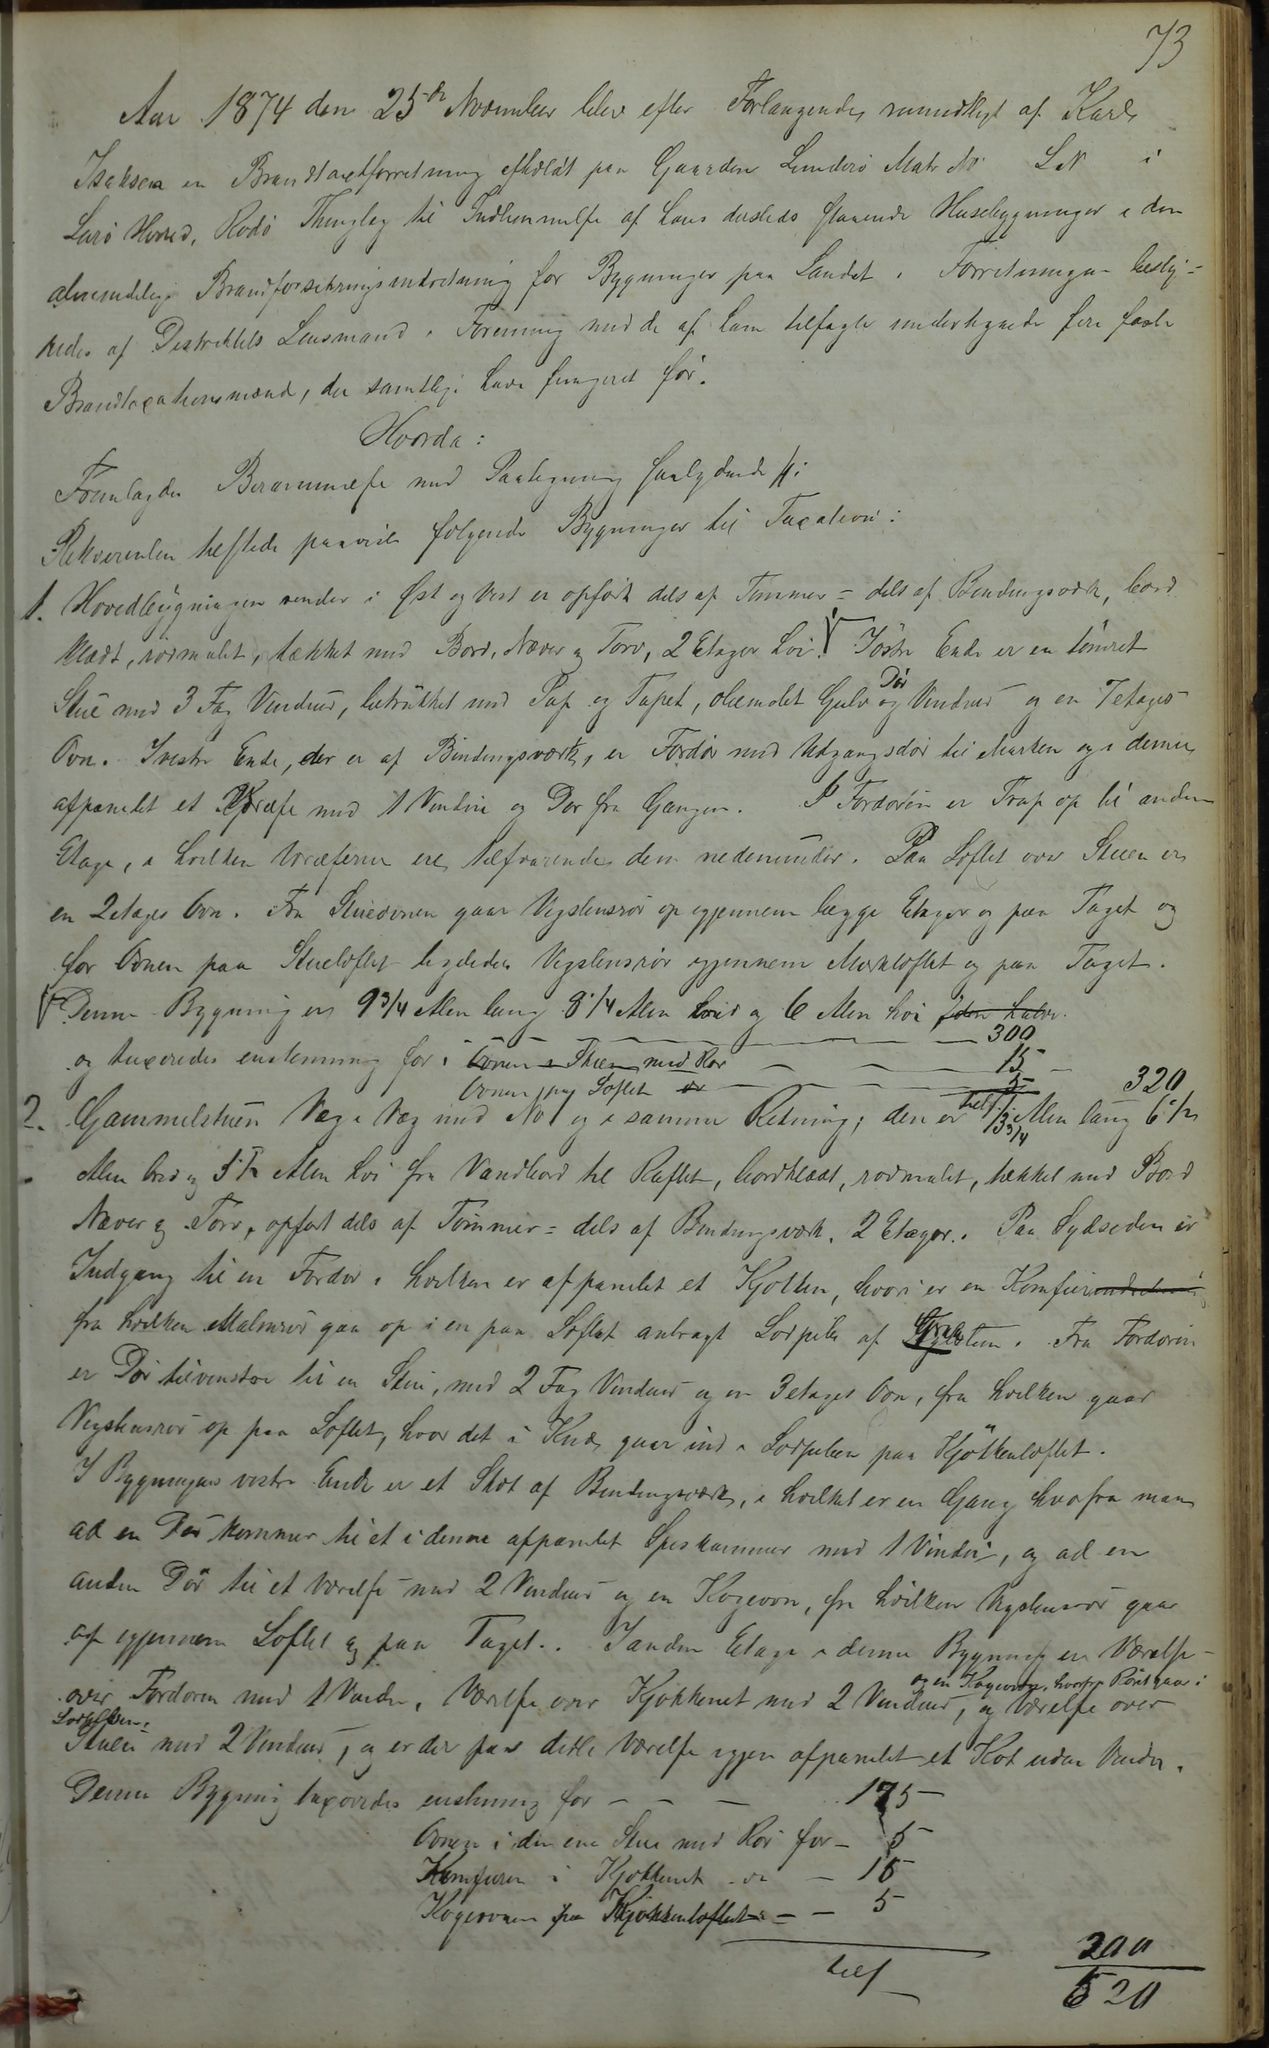 73
Aar 1874 den 25de November blev efter Forlangende mundtligt af Karl
Isaksen en Brandtaxtforretning afholdt paa Gaarden Lunderö Matr No LN i
Lurö Herred, Rodö Thinglag til Indlemmelse af hans dersteds staaende Husebygninger i den
almindelige Brandforsikringsindretning for Bygninger paa Landet. Forretningen besty-
redes af Distriktets Lensmand i Forening med de af ham tilsagte undertegnede fire faste
Brandtaxationsmænd, der samtlige have fungeret för.
Hvorda:
Fremlagdes Berammelse med Paategning saalydende
Rekvirenten tilstede paaviste fölgende Bygninger til Taxation:
1. Hovedbygningen vender i Öst og Vest er opfört dels af Tömmer= dels af Bindingsværk, bord
klædt, rödmalet, tækket med Bord, Næver og Torv, 2 Etager höi. I östre Ende er en tömret
Stue med 3 Fag Vinduer, betrukket med Pap og Tapet, oliemalet Gulv Dör og Vinduer og en 7etages
Ovn. I vestre Ende, der er af Bindingsværk, er Fordör med Udgangsdör til Marken og i denne
afpanelet et Værelse med 1 Vindue og Dör fra Gangen. I Fordören er Trap op til anden
Etage, i hvilken Værelserne ere tilsvarende dem nedenunder. Paa Loftet over Stuen er
en 2etages Ovn. Fra Stueovnen gaar Vegstensrör op igjennem begge Etager og paa Taget og
for Ovnen paa Stueloftet ligeledes Vegstensrör igjennem Mörkloftet og paa Taget.
Denne Bygning er 9 3/4 Alen lang 8 1/4 Alen bred og 6 Alen höi
og taxeredes enstemmig for: 300
Ovnen i Stuen med Rör 15
Ovnen paa Loftet 5 320
2. Gammelstuen Væg i Væg med No 1 og i samme Retning; den er 13 3/4 Alen lang 6 1/2
Alen bred og 5 1/2 Alen höi fra Vandbord til Raftet, bordklædt, rödmalet, tækket med Bord
Næver og Torv, opfört dels af Tömmer= dels af Bindingsværk. 2 Etager. Paa Sydsiden er
Indgang til en Fordör i hvilken er afpanelet et Kjökken, hvori er en Komfur
fra hvilken Malmrör gaa op i en paa Loftet anbragt Sodpibe af Graasten. Fra Fordören
er Dör tilvenstre til en Stue, med 2 Fag Vinduer og en 3etages Ovn, fra hvilken gaar
Vegstensrör op paa Loftet, hvor det i Knæ gaar ind i Sodpiben paa Kjökkenloftet.
I Bygningens vestre Ende er et Skot af Bindingsværk, i hvilket er en Gang hvorfra man
ad en Dör kommer til et i denne afpanelet Spiskammer med 1 Vindue, og ad en
anden Dör til et Værelse med 2 Vinduer og en Kogeovn, fra hvilken Vegstensrör gaar
op igjennem Loftet og paa Taget. I anden Etage i denne Bygning er Værelse
over Fordören med 1 Vindu, Værelse over Kjökkenet med 2 Vinduer, og en Kogeovn, hvorfra Röret gaar i
Sodpiben, og Værelse over
Stuen med 2 Vinduer, og er der paa dette Værelse igjen afpanelet et Kot uden Vindu.
Denne Bygning taxeredes enstemmig for 175
Ovnen i den ene Stue med Rör for 5
Komfuren i Kjökkenet 15
Kogeovnen paa Kjökkenloftet 5
200
tils 520